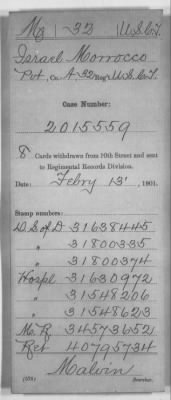 M | - 32 | U.S.C.T.
Israel Morrocco
Pvt, Co. A-32 Reg't U.S.C.T.
Case Number:
2015559
8 Cards withdrawn from 10th Street and sent
to Regimental Records Division.
Date: Febry 13, 1901.
Stamp numbers:
D.S. of D 31638445
" 31800335
" 31800374
Hospl 31630972
" 31548206
" 31548623
M.R. 34573652
Ret 40795734
Malvin
Searcher.